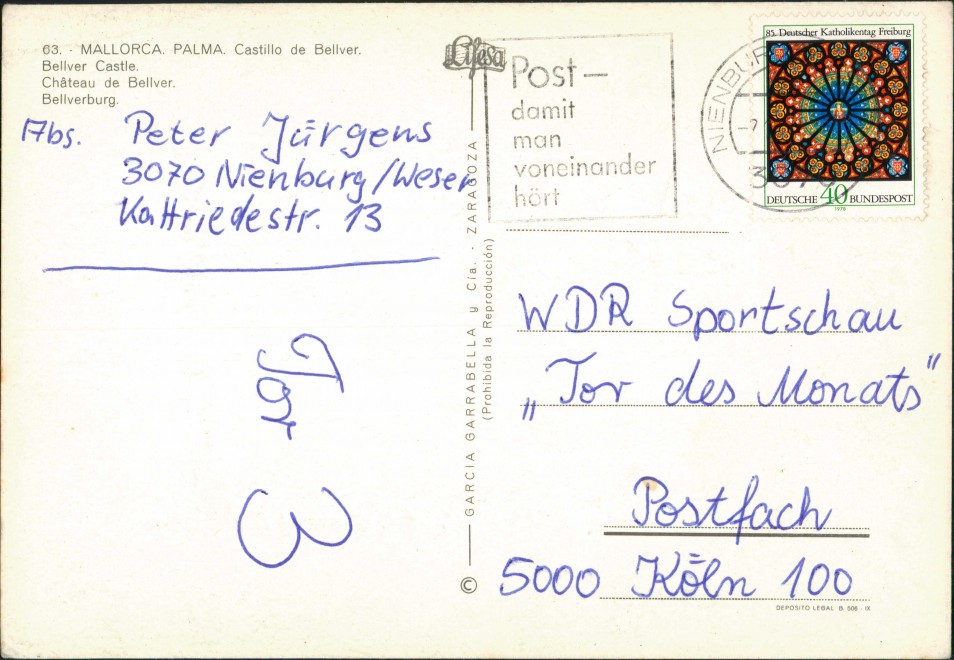 63. - MALLORCA. PALMA. Castillo de Bellver.
Bellver Castle.
Château de Bellver.
Bellverburg.
Abs. Peter Jürgens
3070 Nienburg/Weser
Kattriedestr. 13
Tor
3
Lifesa
GARCIA GARRABELLA y Cía. - ZARAGOZA
(Prohibida la Reproducción)
©
Post-
damit
man
voneinander
hört
NIENBURG
3070
85. Deutscher Katholikentag Freiburg
DEUTSCHE 40 BUNDESPOST
1978
WDR Sportschau
„Tor des Monats“
Postfach
5000 Köln 100
DEPOSITO LEGAL B. 506 - IX